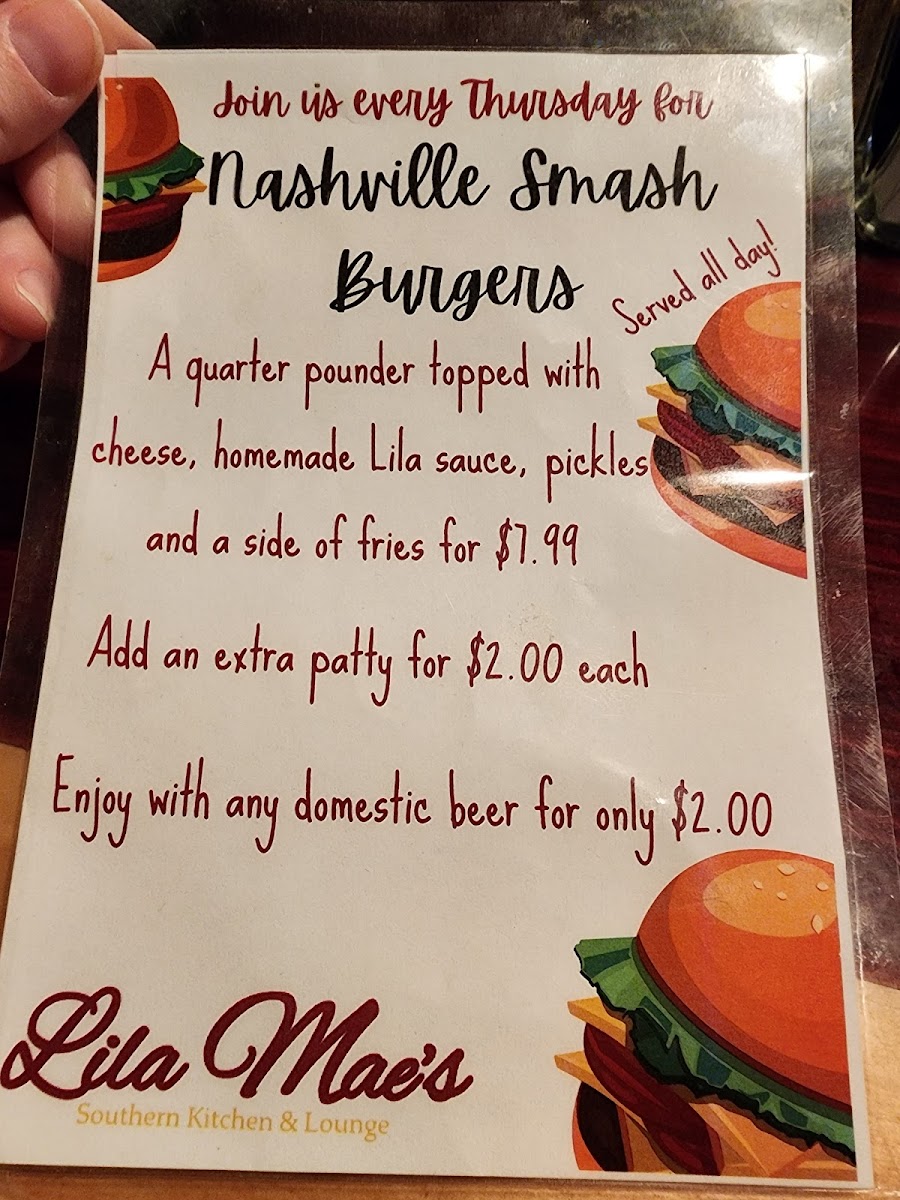 Join us every Thursday for
Nashville Smash
Burgers
Served all day!
A quarter pounder topped with
cheese, homemade Lila sauce, pickles
and a side of fries for $7.99
Add an extra patty for $2.00 each
Enjoy with any domestic beer for only $2.00
Lila Mae's
Southern Kitchen & Lounge